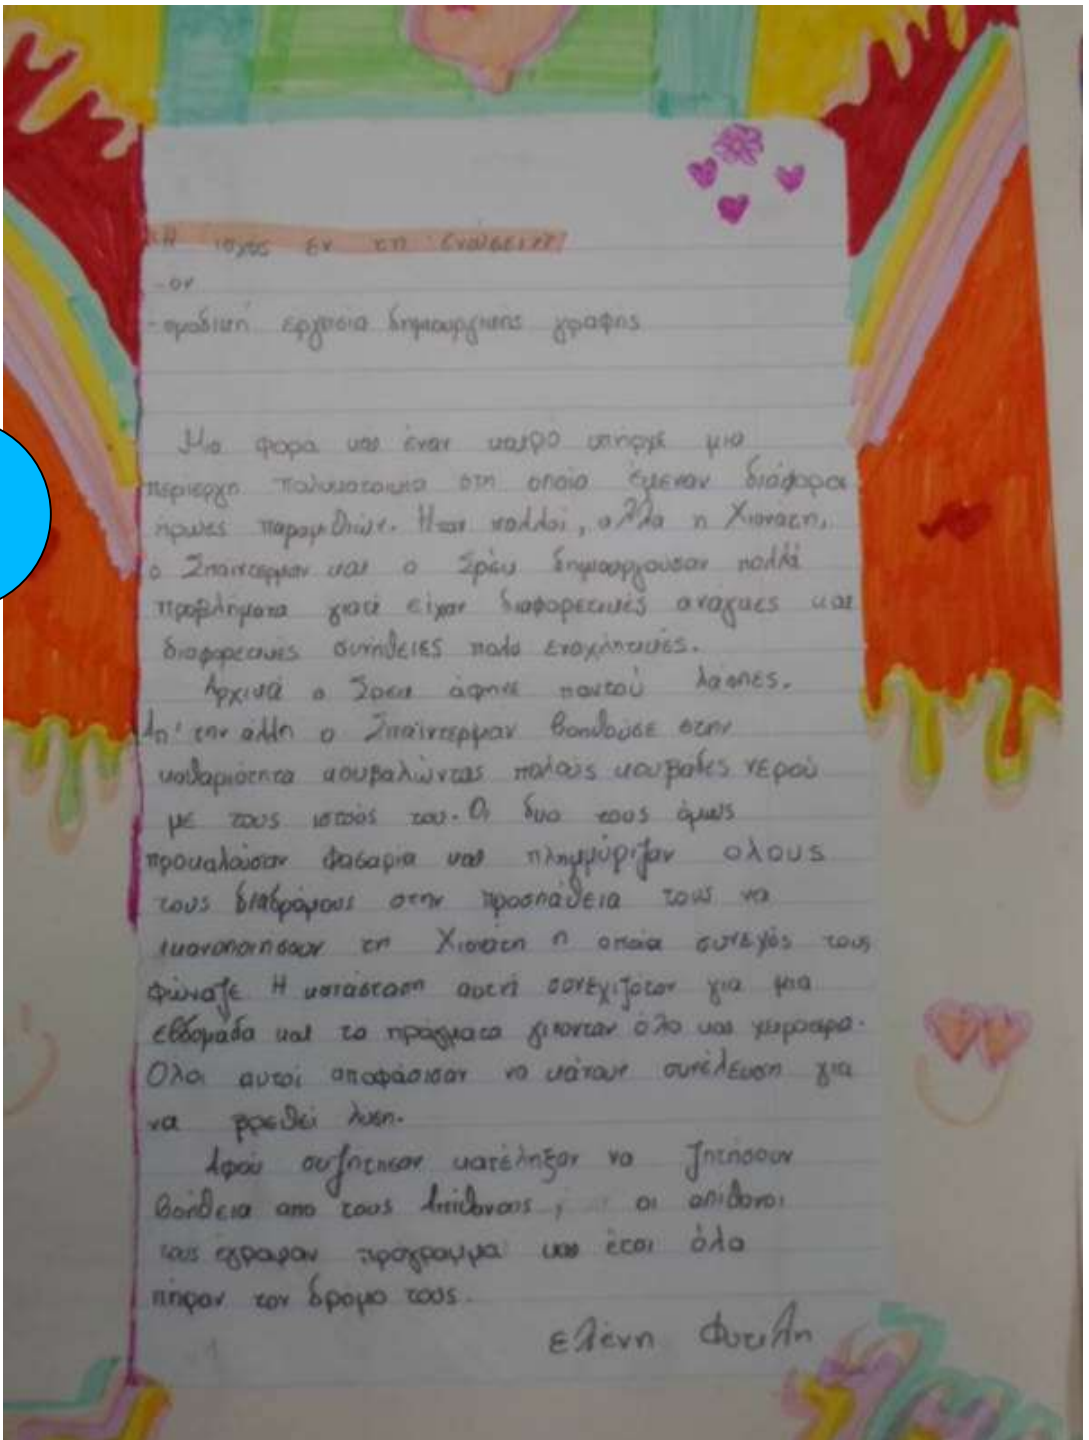 «Η ισχύς εν τη ενώσει»
-ον
-ομαδική εργασία δημιουργικής γραφής
Μια φορά και έναν καιρό υπήρχε μια
περίεργη πολυκατοικία στη οποία έμεναν διάφοροι
ήρωες παραμυθιών. Ήταν πολλοί, αλλα η Χιονάτη,
ο Σπαϊντερμαν και ο Σρέκ δημιουργούσαν πολλά
προβλήματα γιατί είχαν διαφορετικές αναγκες και
διαφορετικές συνήθειες πολύ ενοχλητικές.
Αρχικά ο Σρεκ άφηνε παντού λάσπες.
Απ' την άλλη ο Σπαϊντερμαν βοηθούσε στην
καθαριότητα κουβαλώντας πολούς κουβαδες νερού
με τους ιστούς του. Οι δυο τους όμως
προκαλούσαν φασαρία και πλημμύριζαν ολους
τους διαδρόμους στην προσπάθεια τους να
ικανοποιήσουν τη Χιονάτη η οποία συνεχώς τους
φώναζε Η κατάσταση αυτή συνεχιζόταν για μια
εβδομάδα και τα πράγματα γινονταν όλο και χειροτερα.
Ολοι αυτοί αποφάσισαν να κάνουν συνέλευση για
να βρεθεί λυση.
Αφού συζήτησαν κατέληξαν να ζητήσουν
βοήθεια απο τους Απίθανους, οι απίθανοι
τους έγραψαν πρόγραμμα και έτσι όλα
πήραν τον δρομο τους.
ελένη